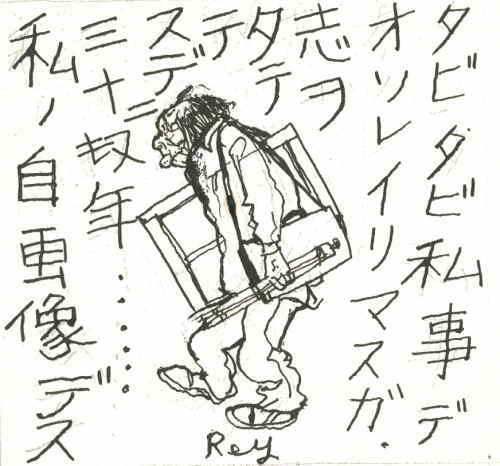 タビタビ私事デ
オソレイリマスガ.
志ヲ
タテ
テ
スデニ
三十数年……
私ノ自画像デス
Rey